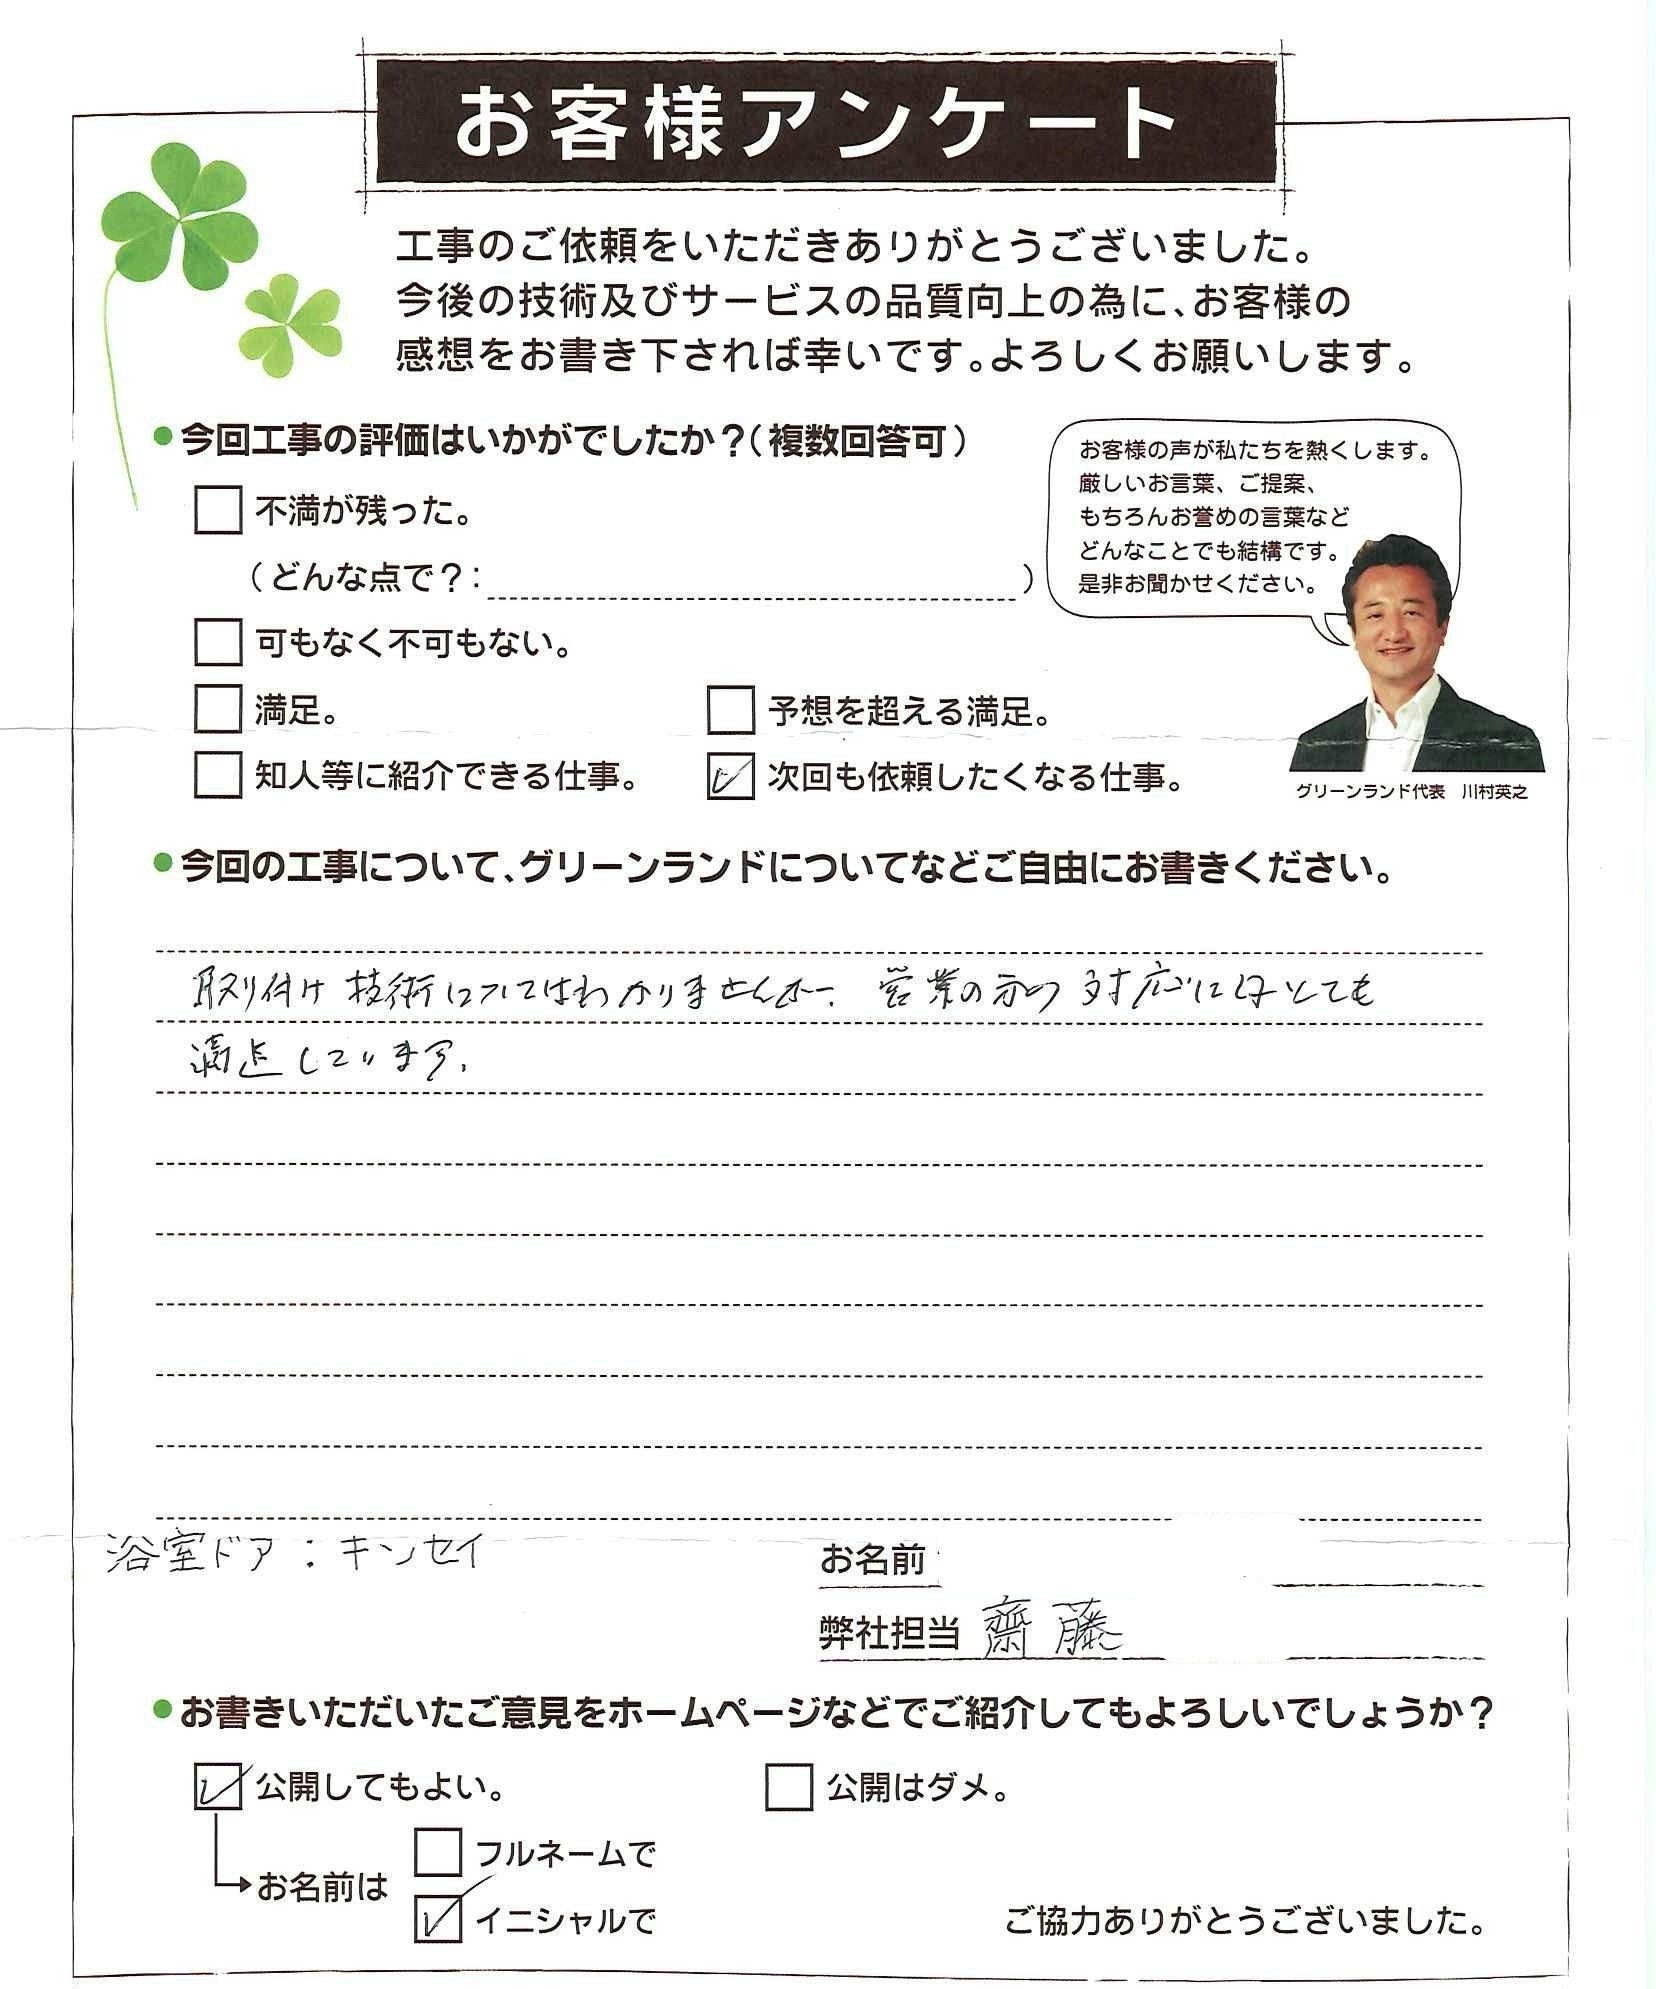 お客様アンケート
工事のご依頼をいただきありがとうございました。
今後の技術及びサービスの品質向上の為に、お客様の
感想をお書き下されば幸いです。よろしくお願いします。
●今回工事の評価はいかがでしたか？（複数回答可）
不満が残った。
（どんな点で？：　）
可もなく不可もない。
満足。
予想を超える満足。
知人等に紹介できる仕事。
次回も依頼したくなる仕事。
お客様の声が私たちを熱くします。
厳しいお言葉、ご提案、
もちろんお誉めの言葉など
どんなことでも結構です。
是非お聞かせください。
グリーンランド代表　川村英之
●今回の工事について、グリーンランドについてなどご自由にお書きください。
取り付け技術についてはわかりませんが、営業の方の対応にはとても
満足しています。
浴室ドア：キンセイ
お名前
弊社担当 齋藤
●お書きいただいたご意見をホームページなどでご紹介してもよろしいでしょうか？
公開してもよい。
公開はダメ。
お名前は
フルネームで
イニシャルで
ご協力ありがとうございました。